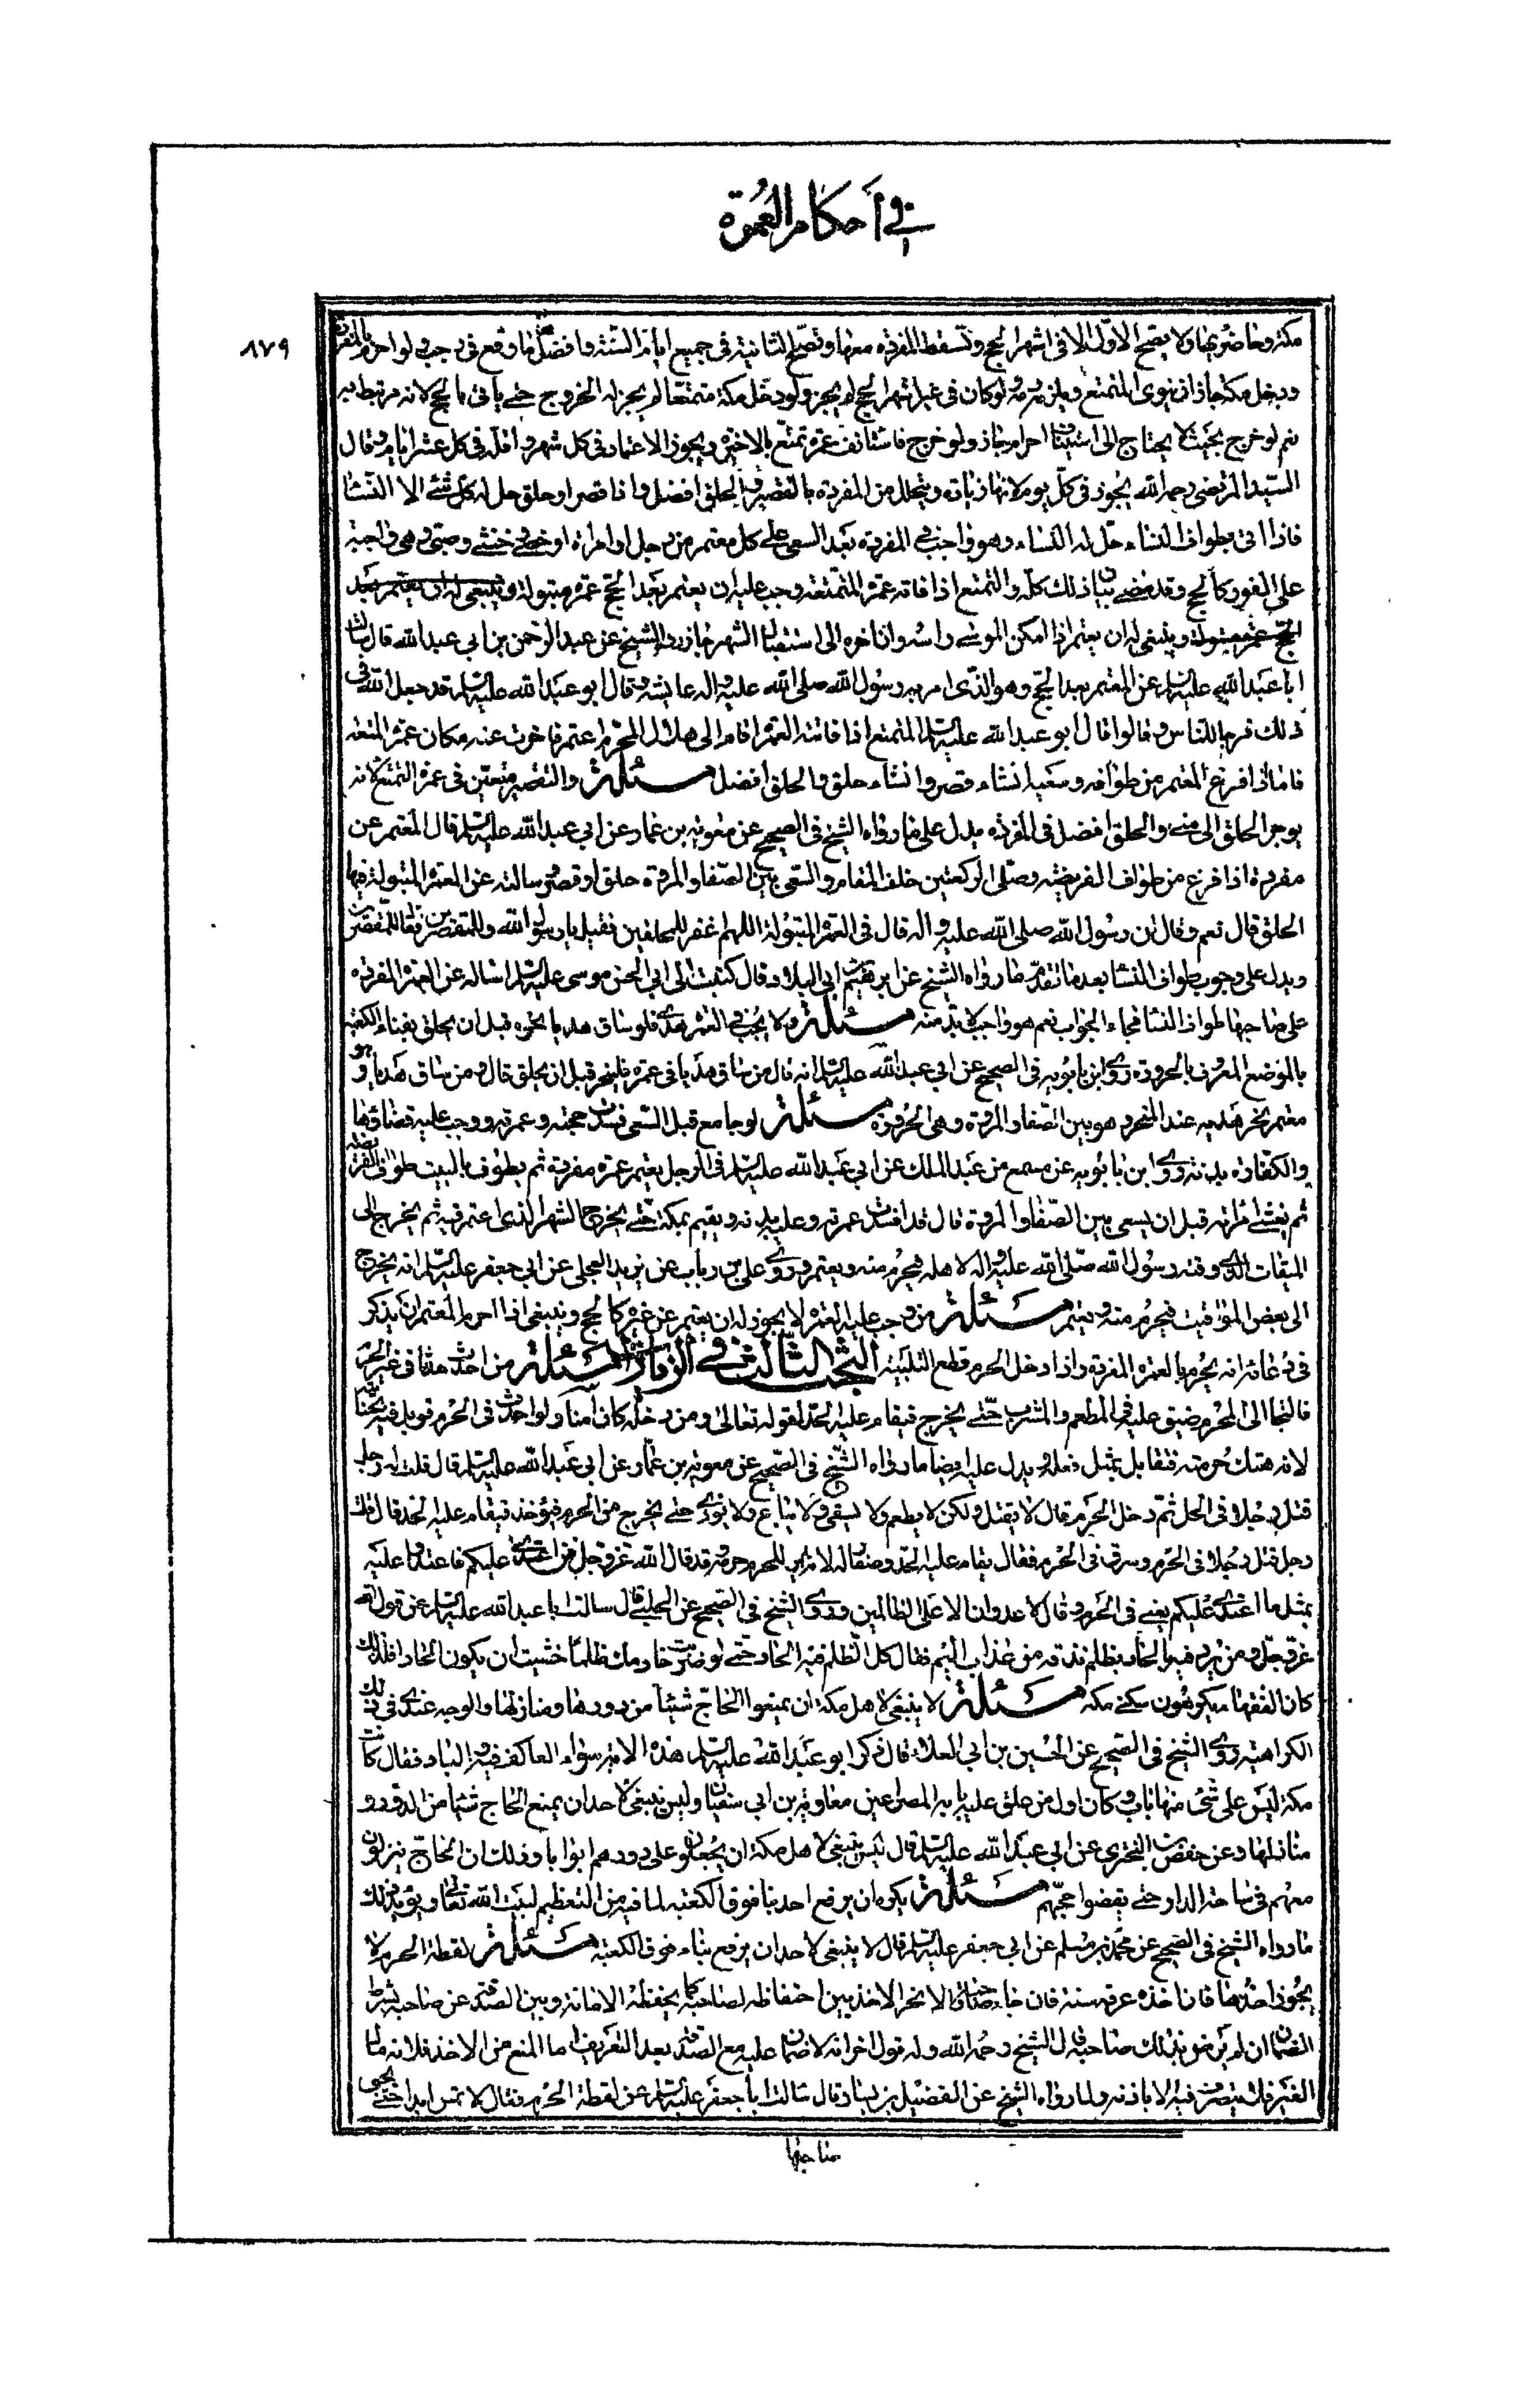 في أحكام العمرة
٨٧٩
مكة وحاضريها ولا يصح الاول الا في اشهر الحج وتسقط المفردة معها وتصح الثانية في جميع ايام السنة وافضل ما وقع في رجب ولو احرم بالمفردة
ودخل مكة جاز ان ينوى التمتع ويلزمه دم ولو كان في غير اشهر الحج لم يجز ولو دخل مكة متمتعا لم يجز له الخروج حتى ياتي بالحج لانه مرتبط به
نعم لو خرج بحيث لا يحتاج الى استيناف احرام جاز ولو خرج فاستانف عمرة تمتع بالاخيرة ويجوز الاعتمار في كل شهر واقله في كل عشرة ايام وقال
السيد المرتضى رحمه الله يجوز في كل يوم لانها زيادة ويتحلل من المفردة بالتقصير والحلق افضل واذا قصر او حلق حل له كل شئ الا النساء
فاذا اتى بطواف النساء حل له النساء وهو واجب في المفردة بعد السعى على كل معتمر من رجل وامراة او خصى وخنثى وصبى وهى واجبة
على الفور كالحج وقد مضى بيان ذلك كله والتمتع اذا فاته عمرة التمتعة وجب عليه ان يعتمر بعد الحج عمرة مبتولة وينبغى له ان يعتمر بعد
الحج عمرة مبتولة وينبغى له ان يعتمر اذا امكن الموسى راسه وان اخره الى استقبال الشهر جاز روى الشيخ عن عبد الرحمن بن ابي عبد الله قال سالت
ابا عبد الله عليه السلم عن المعتمر بعد الحج وهو الذى امر به رسول الله صلى الله عليه واله عايشة وقال ابو عبد الله عليه السلم قد جعل الله في
ذلك فرجا للناس وقالوا قال ابو عبد الله عليه السلم المتمتع اذا فاتته العمرة اقام الى هلال المحرم اعتمر فاجزت عنه مكان عمرة المتعة
فاما اذا فرغ المعتمر من طوافه وسعيه ان شاء قصر وان شاء حلق والحلق افضل مسئلة والتقصير متعين في عمرة التمتع لانه
يوجر الحلق الى منى والحلق افضل في المفردة يدل على ما رواه الشيخ في الصحيح عن معوية بن عمار عن ابي عبد الله عليه السلم قال المعتمر عن
مفردة اذا فرغ من طواف الفريضة وصلى الركعتين خلف المقام والسعى بين الصفا والمروة حلق او قصر وسالته عن العمرة المبتولة فيها
الحلق قال نعم وقال ان رسول الله صلى الله عليه واله قال في العمرة المبتولة اللهم اغفر للمحلقين فقيل يا رسول الله وللمقصرين فقال وللمقصرين
ويدل على وجوب طواف النساء بعد ما تقدم ما رواه الشيخ عن ابرهيم بن ابي البلاد قال كتبت الى ابي الحسن موسى عليه السلم اساله عن العمرة المفردة
على صاحبها طواف النساء فجاء الجواب نعم هو واجب لابد منه مسئلة ولا يجب في العمرة هدى فلو ساق هديا نحره قبل ان يحلق بفناء الكعبة
بالموضع المعروف بالحزورة روى ابن بابويه في الصحيح عن ابي عبد الله عليه السلم انه قال من ساق هديا في عمرة فلينحر قبل ان يحلق قال ومن ساق هديا وهو
معتمر نحر هديه عند المنحر وهو بين الصفا والمروة وهى الحزورة مسئلة لو جامع قبل السعى فسدت حجته وعمرته ووجب عليه قضاؤها
والكفارة بدنة روى ابن بابويه عن مسمع عن عبد الملك عن ابي عبد الله عليه السلم في الرجل يعتمر عمرة مفردة ثم يطوف بالبيت طواف الفريضة
ثم يغشى امراته قبل ان يسعى بين الصفا والمروة قال قد افسدت عمرته وعليه بدنة ويقيم بمكة حتى يخرج الشهر الذى اعتمر فيه ثم يخرج الى
الميقات الذى وقته رسول الله صلى الله عليه واله لاهله فيحرم منه ويعتمر وروى على بن رباب عن بريد العجلى عن ابي جعفر عليه السلم انه يخرج
الى بعض المواقيت فيحرم منه ويعتمر مسئلة من وجب عليه العمرة لا يجوز له ان يعتمر عن غيره كالحج وينبغى اذا احرم المعتمر ان يذكر
في دعائه انه يحرم بالعمرة المفردة واذا دخل الحرم قطع التلبية البحث الثالث في الزيارات مسئلة من احدث حدثا في غير الحرم
فالتجا الى الحرم ضيق عليه في المطعم والمشرب حتى يخرج فيقام عليه الحد لقوله تعالى ومن دخله كان آمنا ولو احدث في الحرم قوبل فيه بجنايته
لانه هتك حرمته فيقابل بمثل فعله ويدل عليه ايضا ما رواه الشيخ في الصحيح عن معوية بن عمار عن ابي عبد الله عليه السلم قال قلت له رجل
قتل رجلا في الحل ثم دخل الحرم قال لا يقتل ولكن لا يطعم ولا يسقى ولا يبايع ولا يؤوى حتى يخرج من الحرم فيؤخذ فيقام عليه الحد قال قلت
رجل قتل رجلا في الحرم وسرق في الحرم فقال يقام عليه الحد وصغار له لانه لم ير للحرم حرمة وقد قال الله عز وجل فمن اعتدى عليكم فاعتدوا عليه
بمثل ما اعتدى عليكم يعنى في الحرم وقال لا عدوان الا على الظالمين وروى الشيخ في الصحيح عن الحلبى قال سالت ابا عبد الله عليه السلم عن قول الله
عز وجل ومن يرد فيه بالحاد بظلم نذقه من عذاب اليم فقال كل الظلم فيه الحاد حتى لو ضربت خادمك ظلما خشيت ان يكون الحادا فلذلك
كان الفقهاء يكرهون سكنى مكة مسئلة لا ينبغى لاهل مكة ان يمنعوا الحاج شيئا من دورها ومنازلها والوجه عندى في ذلك
الكراهية روى الشيخ في الصحيح عن الحسين بن ابي العلاء قال ذكر ابو عبد الله عليه السلم هذه الاية سواء العاكف فيه والباد فقال كانت
مكة ليس على شئ منها باب وكان اول من علق على بابه المصراعين معاوية بن ابي سفيان وليس ينبغى لاحد ان يمنع الحاج شيئا من الدور و
منازلها وعن حفص بن البخترى عن ابي عبد الله عليه السلم قال ليس ينبغى لاهل مكة ان يجعلوا على دورهم ابوابا وذلك ان الحاج ينزلون
معهم في ساحة الدار حتى يقضوا حجهم مسئلة يكره ان يرفع احد بناء فوق الكعبة لما فيه من التعظيم لبيت الله تعالى ويؤيد ذلك
ما رواه الشيخ في الصحيح عن محمد بن مسلم عن ابي جعفر عليه السلم قال لا ينبغى لاحد ان يرفع بناء فوق الكعبة مسئلة لقطة الحرم لا
يجوز اخذها فان اخذه عرفه سنة فان جاء صاحبه والا تخير الاخذ بين احتفاظه لصاحبه كما يحفظه الامانة وبين الصدقة عن صاحبه بشرط
الضمان ان لم يرض بذلك صاحبه قال الشيخ رحمه الله وله قول اخر انه لا ضمان عليه مع الصدقة بعد التعريف اما المنع من الاخذ فلانه مال
الغير فلا يتصرف فيه الا باذنه ولما رواه الشيخ عن الفضيل بن يسار قال سالت ابا جعفر عليه السلم عن لقطة الحرم فقال لا تمس ابدا حتى يجئ
صاحبها